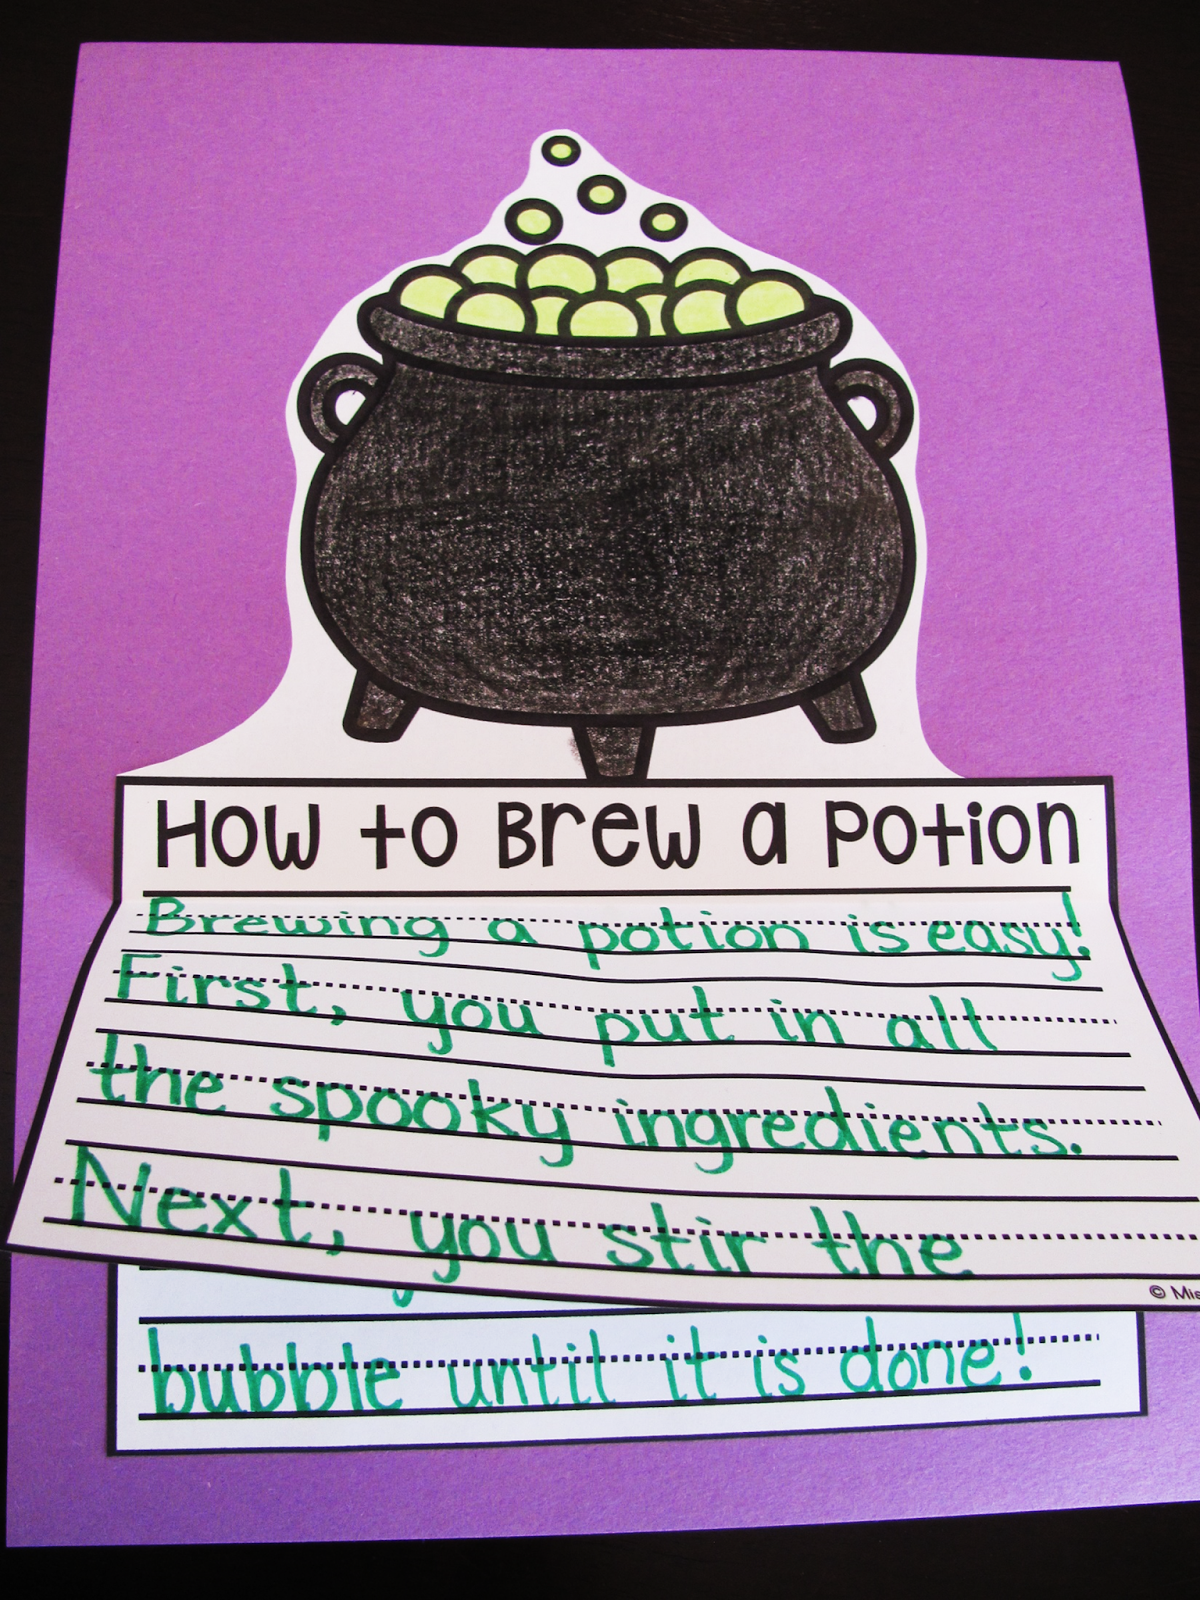 How to Brew a Potion
Brewing a potion is easy!
First, you put in all
the spooky ingredients.
Next, you stir the
©
bubble until it is done!